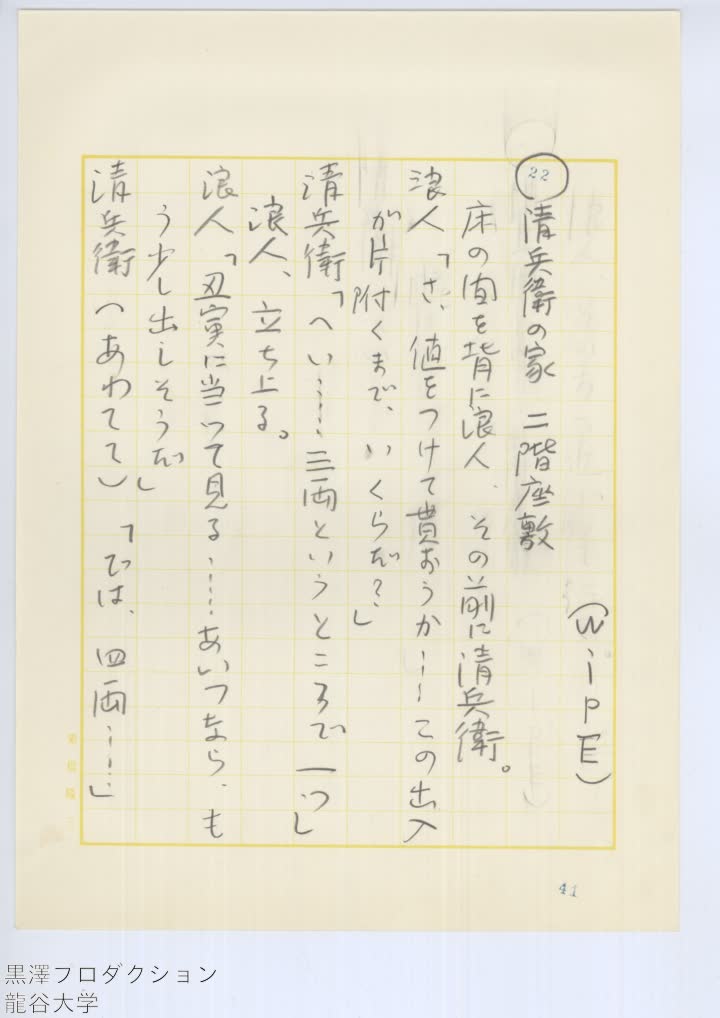 (WipE)
22 清兵衛の家 二階座敷
床の間を背に浪人、その前に清兵衛。
浪人「さ、値をつけて貰おうか……この出入
が片附くまで、いくらだ?」
清兵衛「へい……三両というところで一つ」
浪人、立ち上る。
浪人「丑寅に当って見る……あいつなら、も
う少し出しそうだ」
清兵衛(あわてて)「では、四両……」
41
黒澤プロダクション
龍谷大学